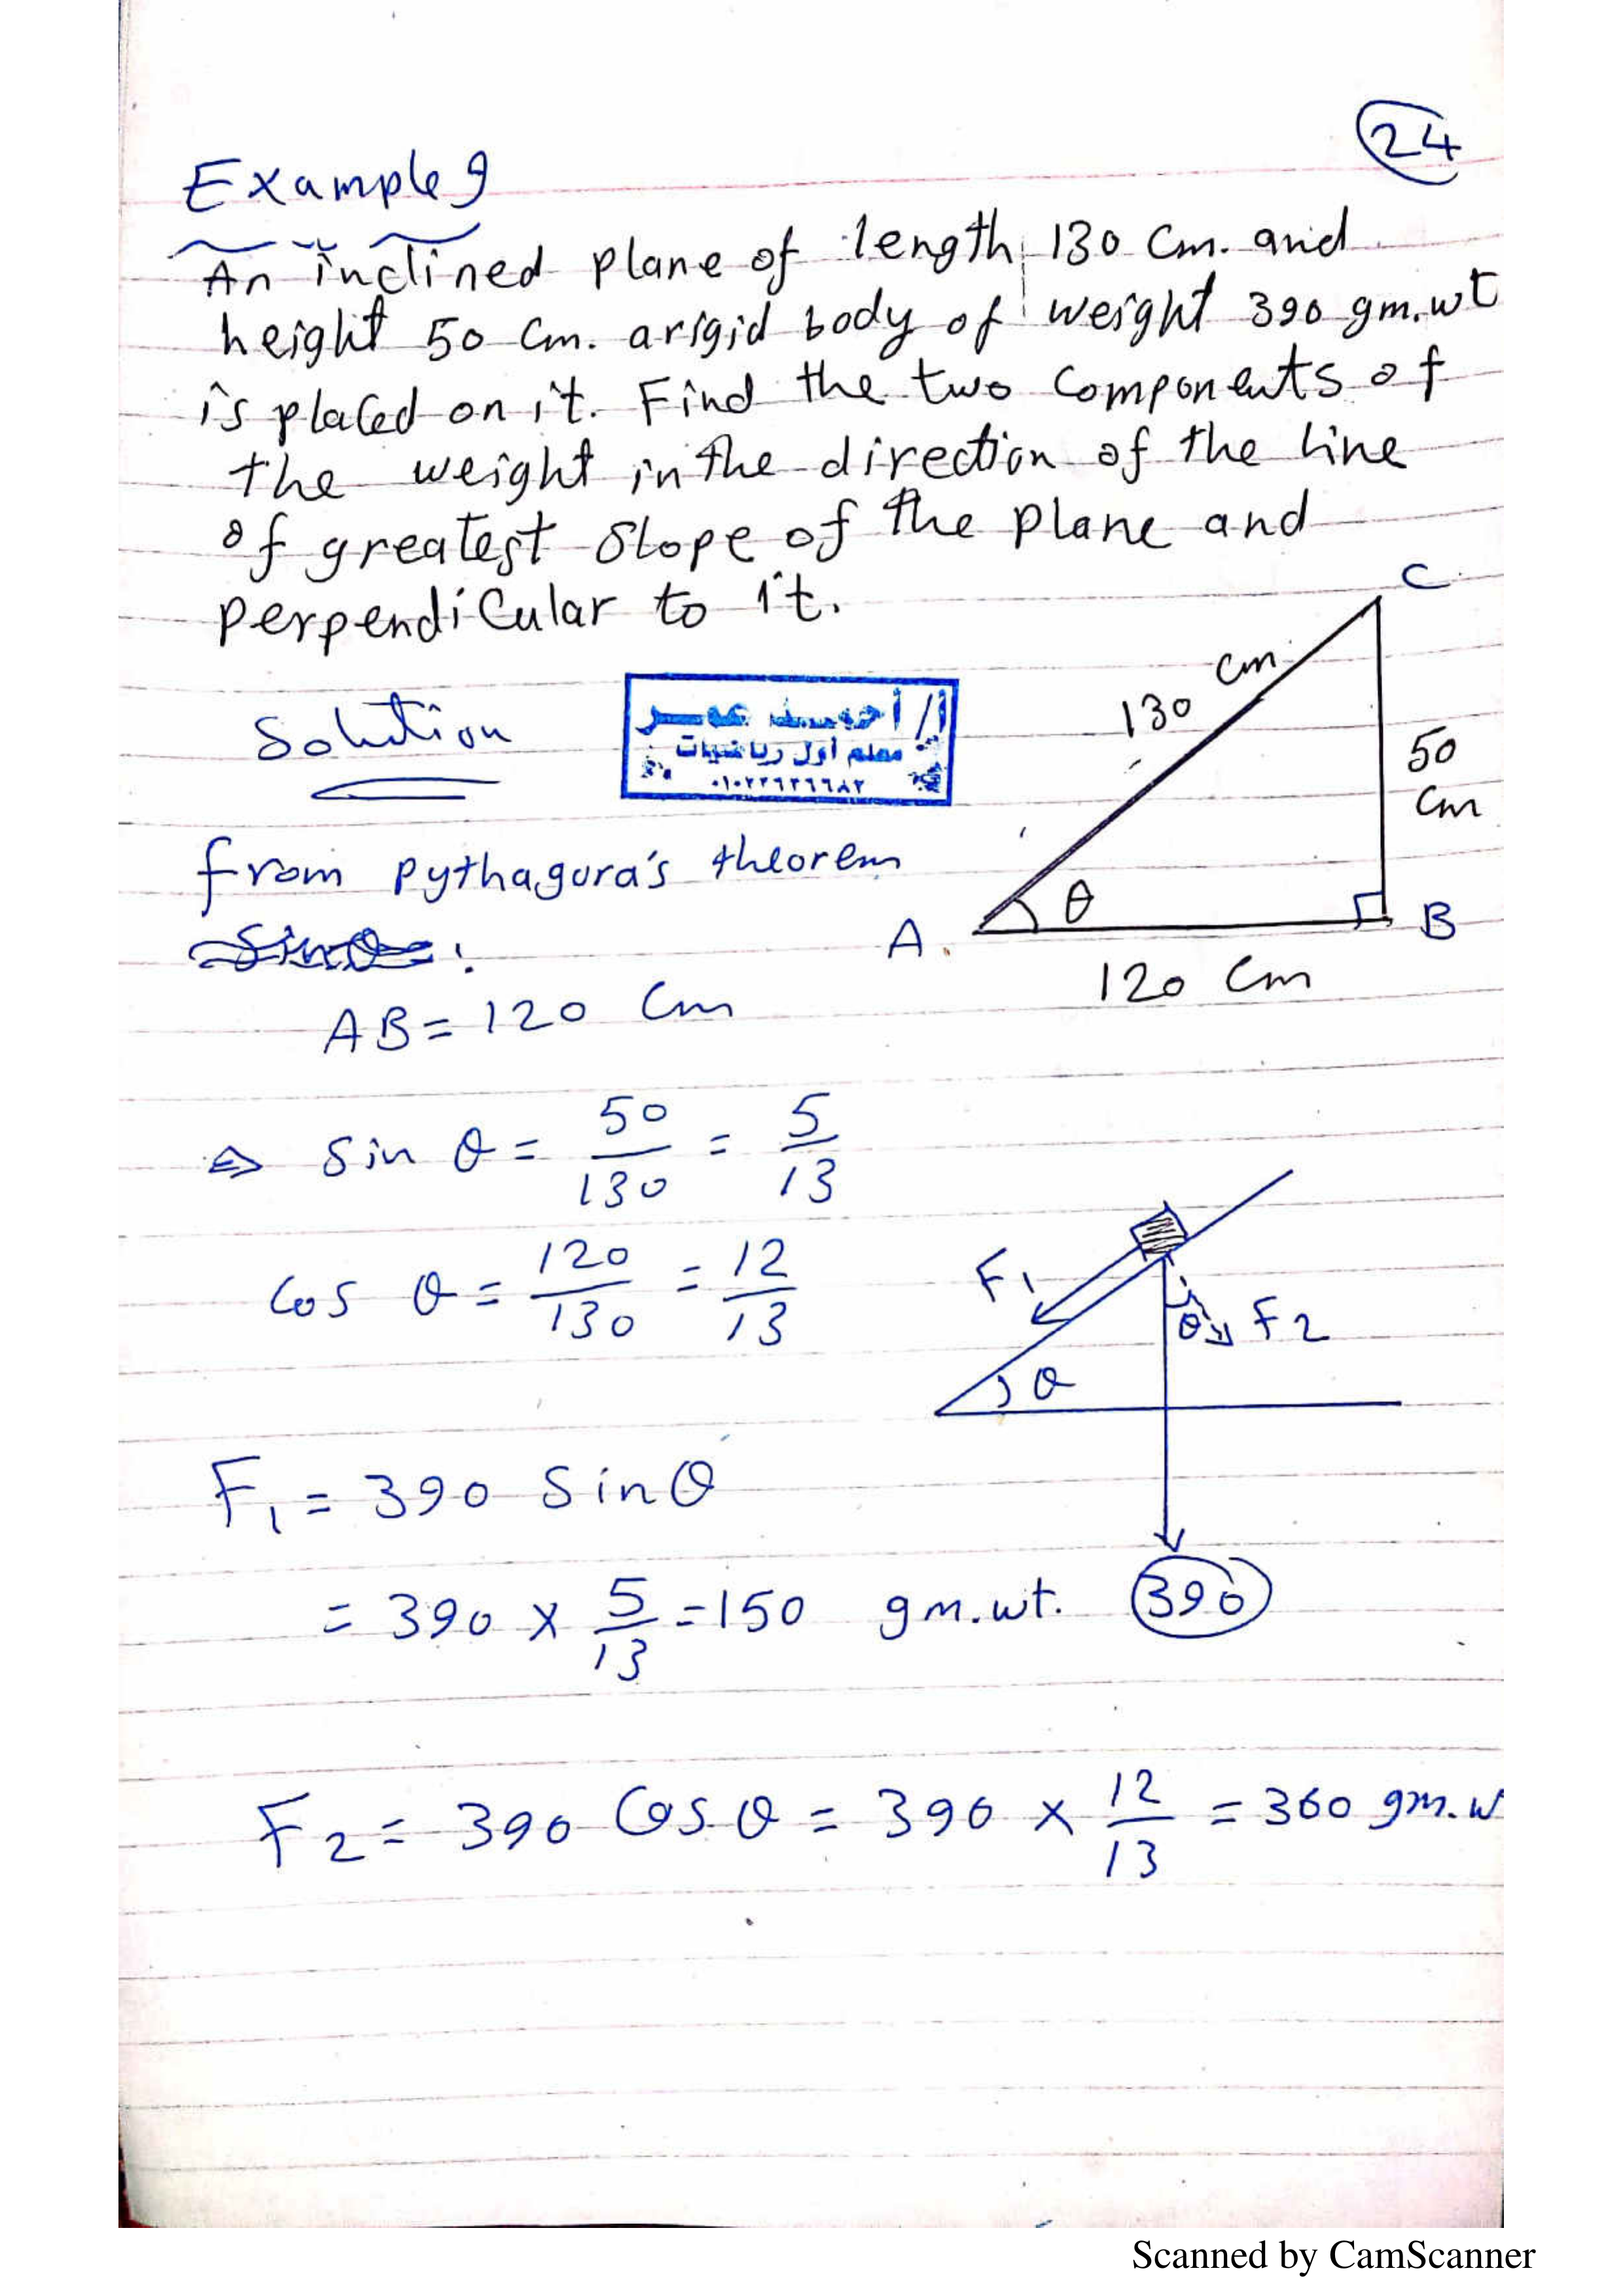 24
Example 9
An inclined plane of length 130 Cm. and
height 50 Cm. a rigid body of weight 390 gm.wt
is placed on it. Find the two components of
the weight in the direction of the line
of greatest slope of the plane and
perpendicular to it.
C
130 cm
50
Cm
θ
A.
B
120 Cm
Solution
أ/ أحمد عمر
معلم أول رياضيات
from pythagora's theorem
Sinθ=:
AB = 120 Cm
⇒ Sin θ = 50/130 = 5/13
Cos θ = 120/130 = 12/13
F1
θ F2
θ
390
F1 = 390 Sinθ
= 390 × 5/13 = 150 gm.wt.
F2 = 390 Cos θ = 390 × 12/13 = 360 gm.w
Scanned by CamScanner